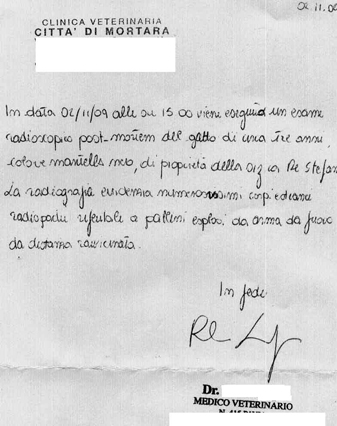 02.11.09
CLINICA VETERINARIA
CITTA' DI MORTARA
In data 02/11/09 alle ore 15 00 viene eseguito un esame
radioscopico post-mortem del gatto di circa tre anni,
colore mantello nero, di proprietà della sig.ra Re Stefan
La radiografia evidenzia numerosissimi corpi estranei
radiopachi riferibili a pallini esplosi da arma da fuoco
da distanza ravvicinata.
In fede
Dr.
MEDICO VETERINARIO